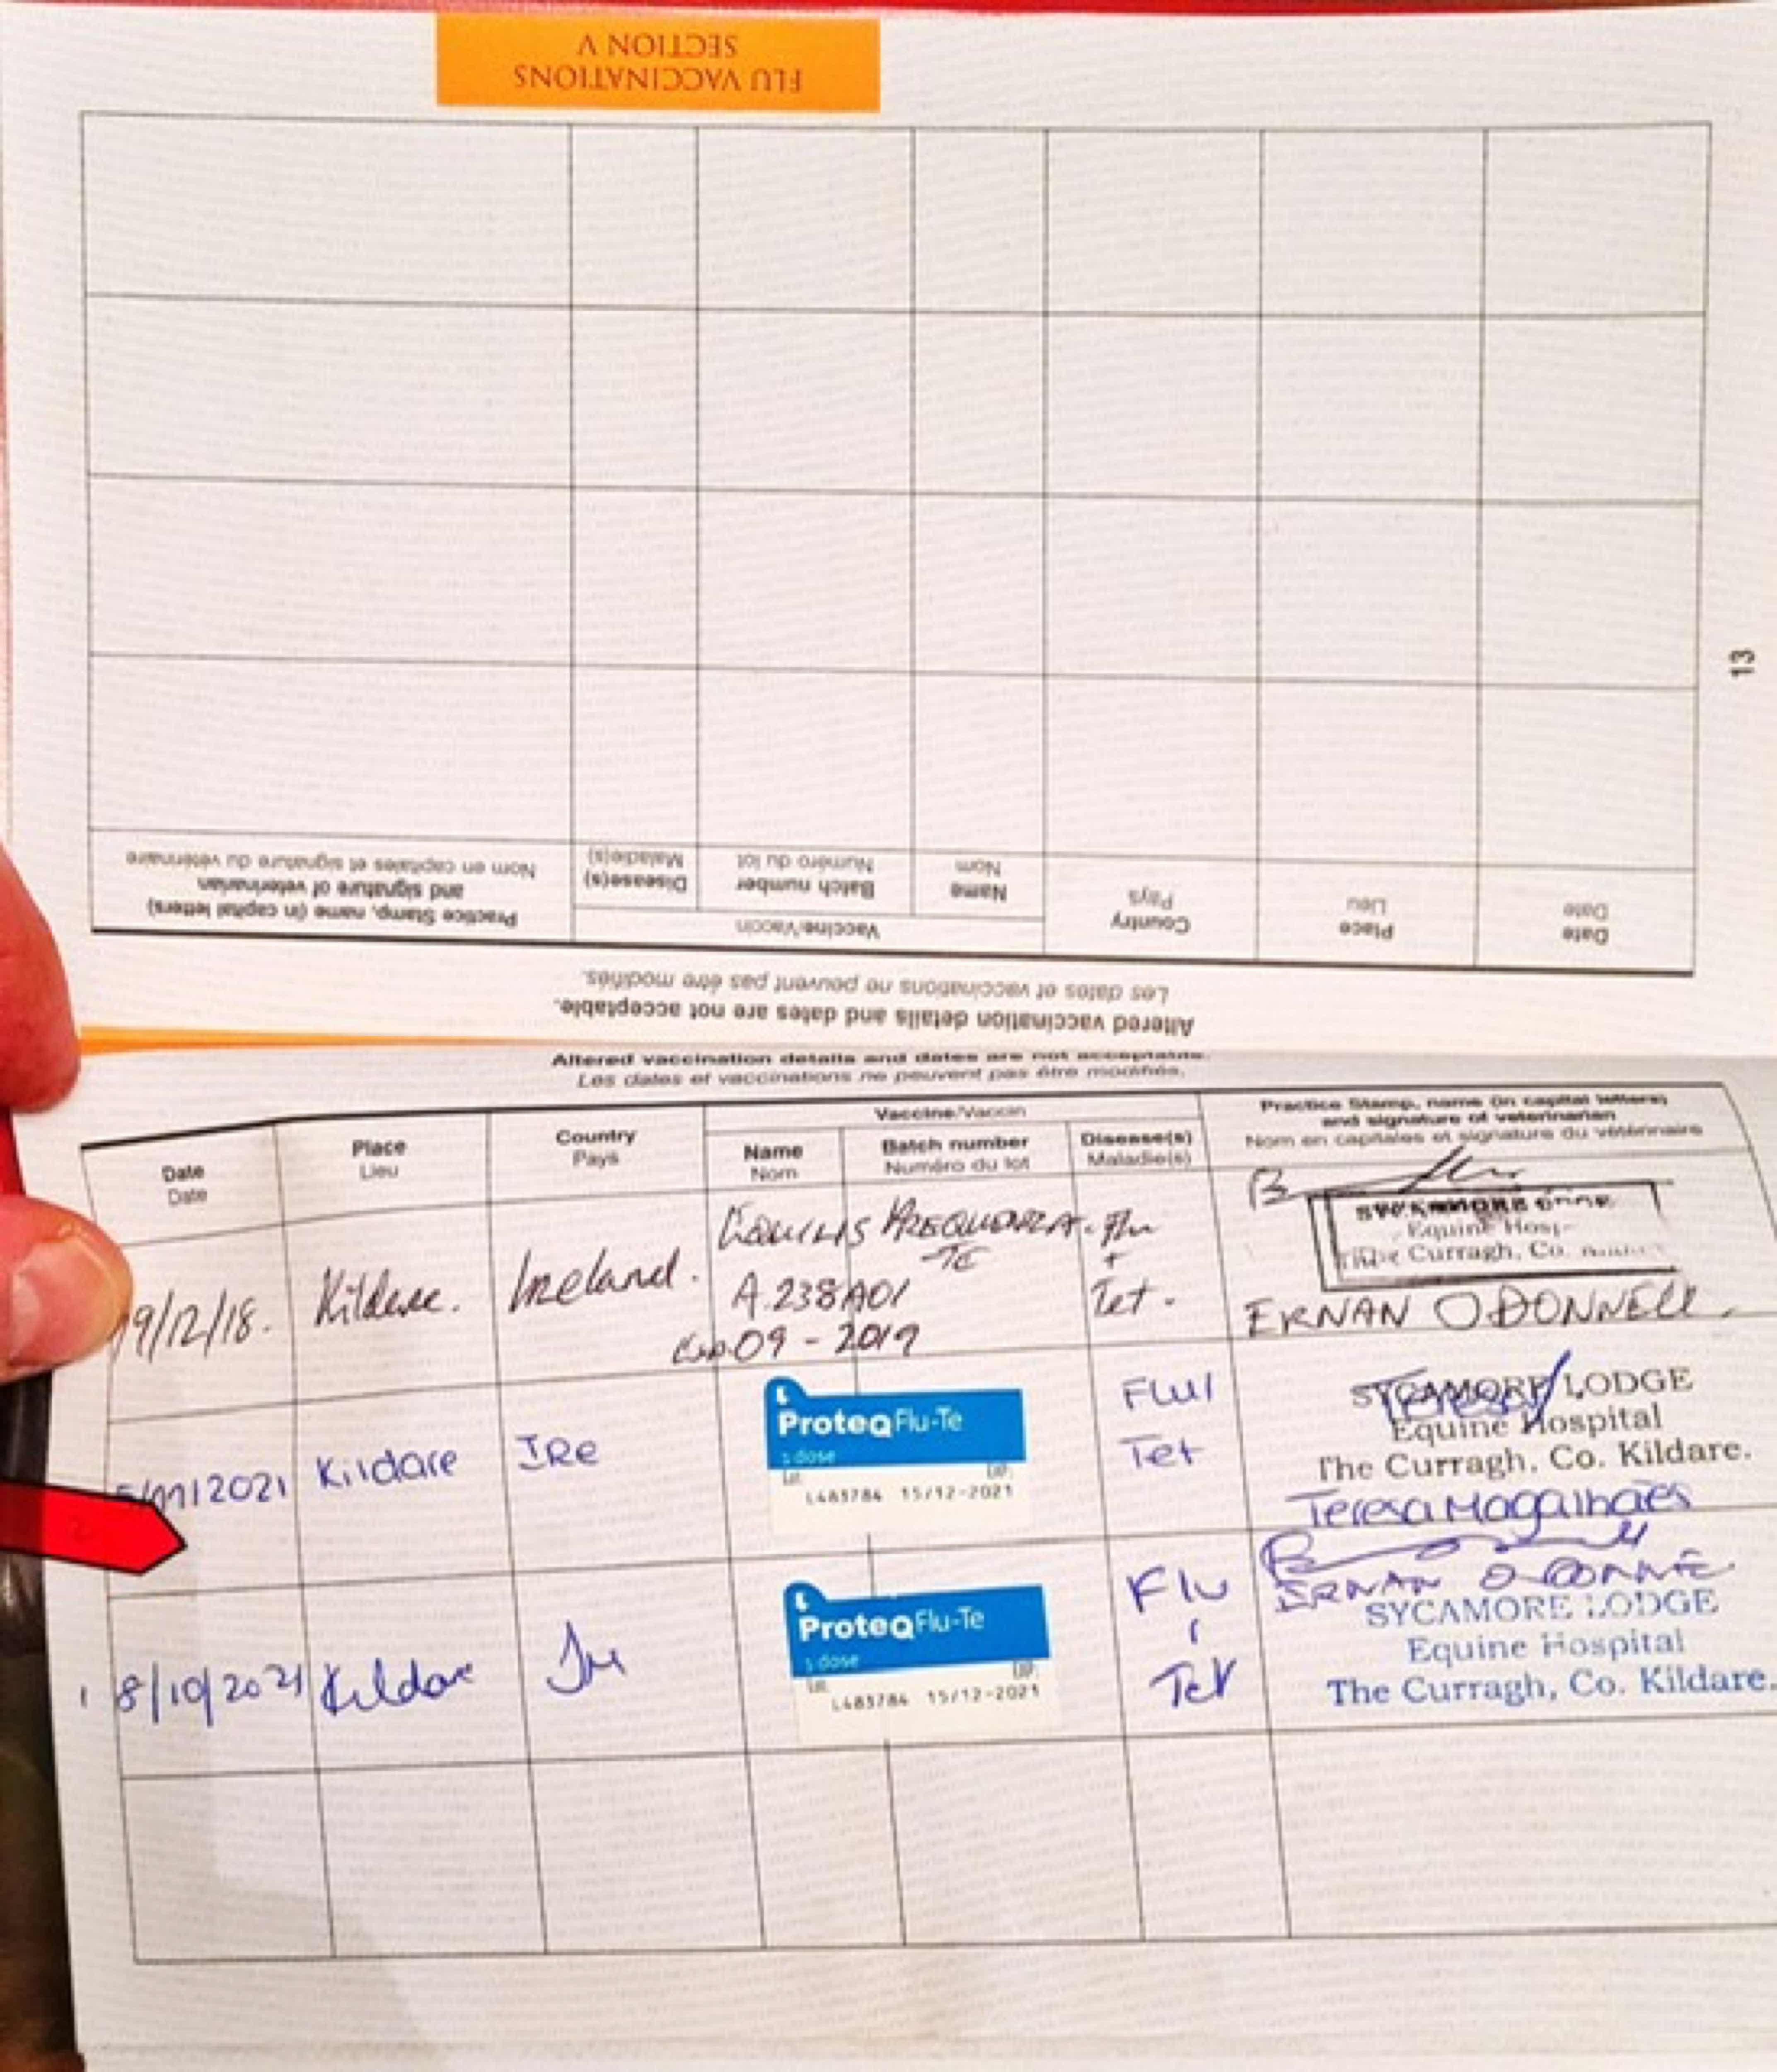 FLU VACCINATIONS
SECTION V
13
Altered vaccination details and dates are not acceptable.
Les dates et vaccinations ne peuvent pas être modifiés.
Date
Date
Place
Lieu
Country
Pays
Vaccine/Vaccin
Name
Nom
Batch number
Numéro du lot
Disease(s)
Maladie(s)
Practice Stamp, name (in capital letters)
and signature of veterinarian
Nom en capitales et signature du vétérinaire
Altered vaccination details and dates are not acceptable.
Les dates et vaccinations ne peuvent pas être modifiés.
Date
Date
Place
Lieu
Country
Pays
Vaccine/Vaccin
Name
Nom
Batch number
Numéro du lot
Disease(s)
Maladie(s)
Practice Stamp, name (in capital letters)
and signature of veterinarian
Nom en capitales et signature du vétérinaire
19/12/18.
Kildare.
Ireland.
EQUILIS PREQUENZA
TE
A.238A01
Exp 09 - 2019
Flu
+
Tet.
SYCAMORE
Equine
The Curragh, Co.
ERNAN O DONNELL
2021
Kildare
IRe
ProteqFlu-Te
1 dose
L483784 15/12-2021
Flu/
Tet
SYCAMORE LODGE
Equine Hospital
The Curragh, Co. Kildare.
Teresa Magalhaes
18/10/2021
Kildare
Ire
ProteqFlu-Te
1 dose
L483784 15/12-2021
Flu
Tet
ERNAN O DONNE
SYCAMORE LODGE
Equine Hospital
The Curragh, Co. Kildare.